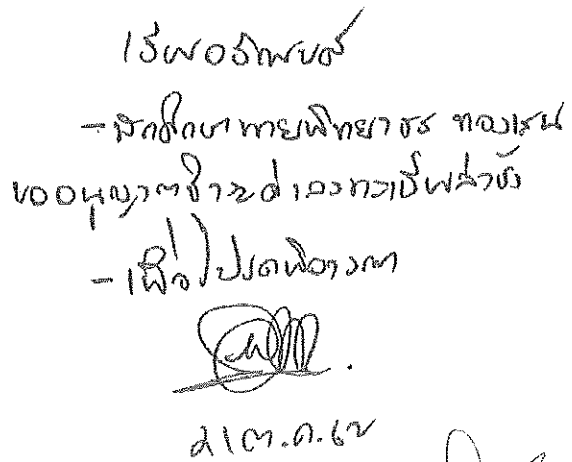 เรียน อธิการบดี
- นักศึกษา นายพิทยาธร ทองเรน
ขออนุญาตชำระค่าลงทะเบียนล่าช้า
- เพื่อโปรดพิจารณา
ต.ค.